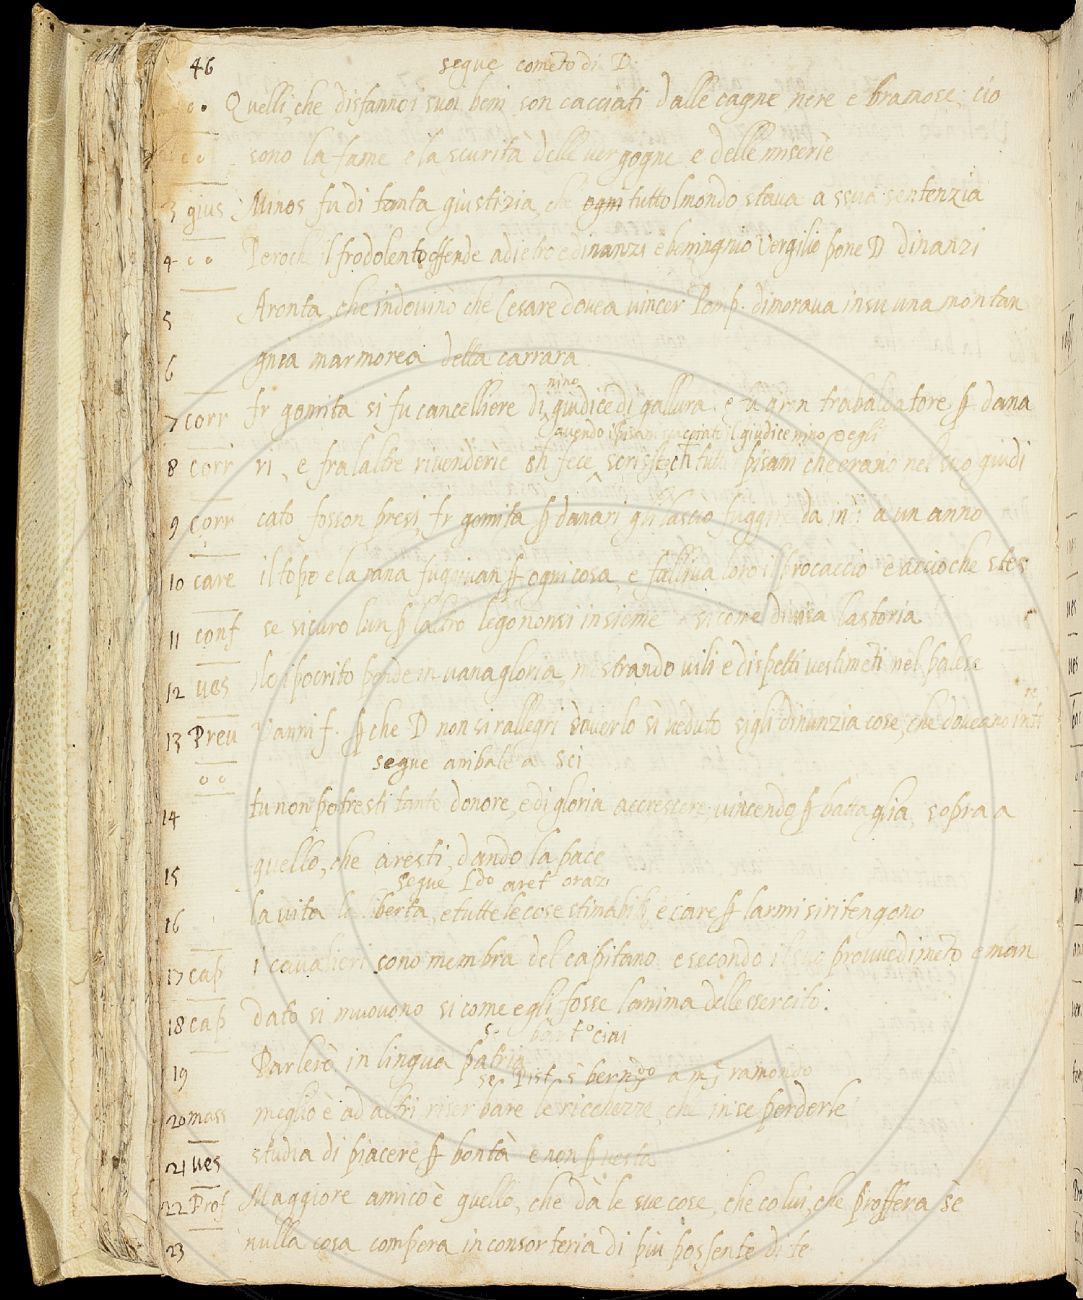 46 segue cometo di D.
Quelli, che disfanno i suoi beni son cacciati dalle cagne nere e bramose, cio
sono la fame e la scurita delle vergogne e delle miserie
3 gius Minos fu di tanta giustizia, che ogni tutto lmondo stava a ssua sentenzia
4 Peroche il frodolento offende adietro e dinanzi e beningnio Vergilio pone D dinanzi
5 Aronta, che indovinò che Cesare dovea vincer Pomp. dimorava in su una montan
6 gnia marmorea della carrara
nino
7 corr fr gomita si fu cancelliere di giudice di gallura e u gran trabaldatore p dana
quando i pisani cacciati il giudice nino egli
8 corr ri, e fra laltre rivenderie ch fece scrisse, ch tutti pisani che erano nel suo giudi
9 corr cato fosson presi, fr gomita p danari gli lascio fuggire da indi a un anno
10 care il topo e la rana fuggivan p ogni cosa, e falliva loro il procaccio e accioche stes
11 conf se sicuro lun p laltro legoronsi insieme si come divisa lastoria
12 ues Lo ipocrito pende in vanagloria, mostrando vili e dispetti vestimeti nel palese
13 Preu Vanni f. p che D non si rallegri doverlo sì veduto sigli dinunzia cose, che doveano
segue anibale a Sci
14 tu non potresti tanto donore, e di gloria accrescere vincendo p battaglia, sopra a
15 quello, che aresti, dando la pace
segue Ldo aret orazi
16 la vita la liberta, e tutte le cose stimabili, e care p larmi si ritengono
17 cap I cavalieri sono membra del capitano e secondo il suo provvedimeto e man
18 cap dato si muovono si come egli fosse lanima dellessercito.
19 Parlerò in lingua patria
se. Pist. s bernrdo a mr ramondo
20 mass meglio è ad altri riserbare le ricchezze, che in se perderle
21 ues studia di piacere p bontà e non p vesta
22 Prof Maggiore amico è quello, che dà le sue cose, che colui, che proffera sè
23 nulla cosa compera in consorteria di piu possente di te